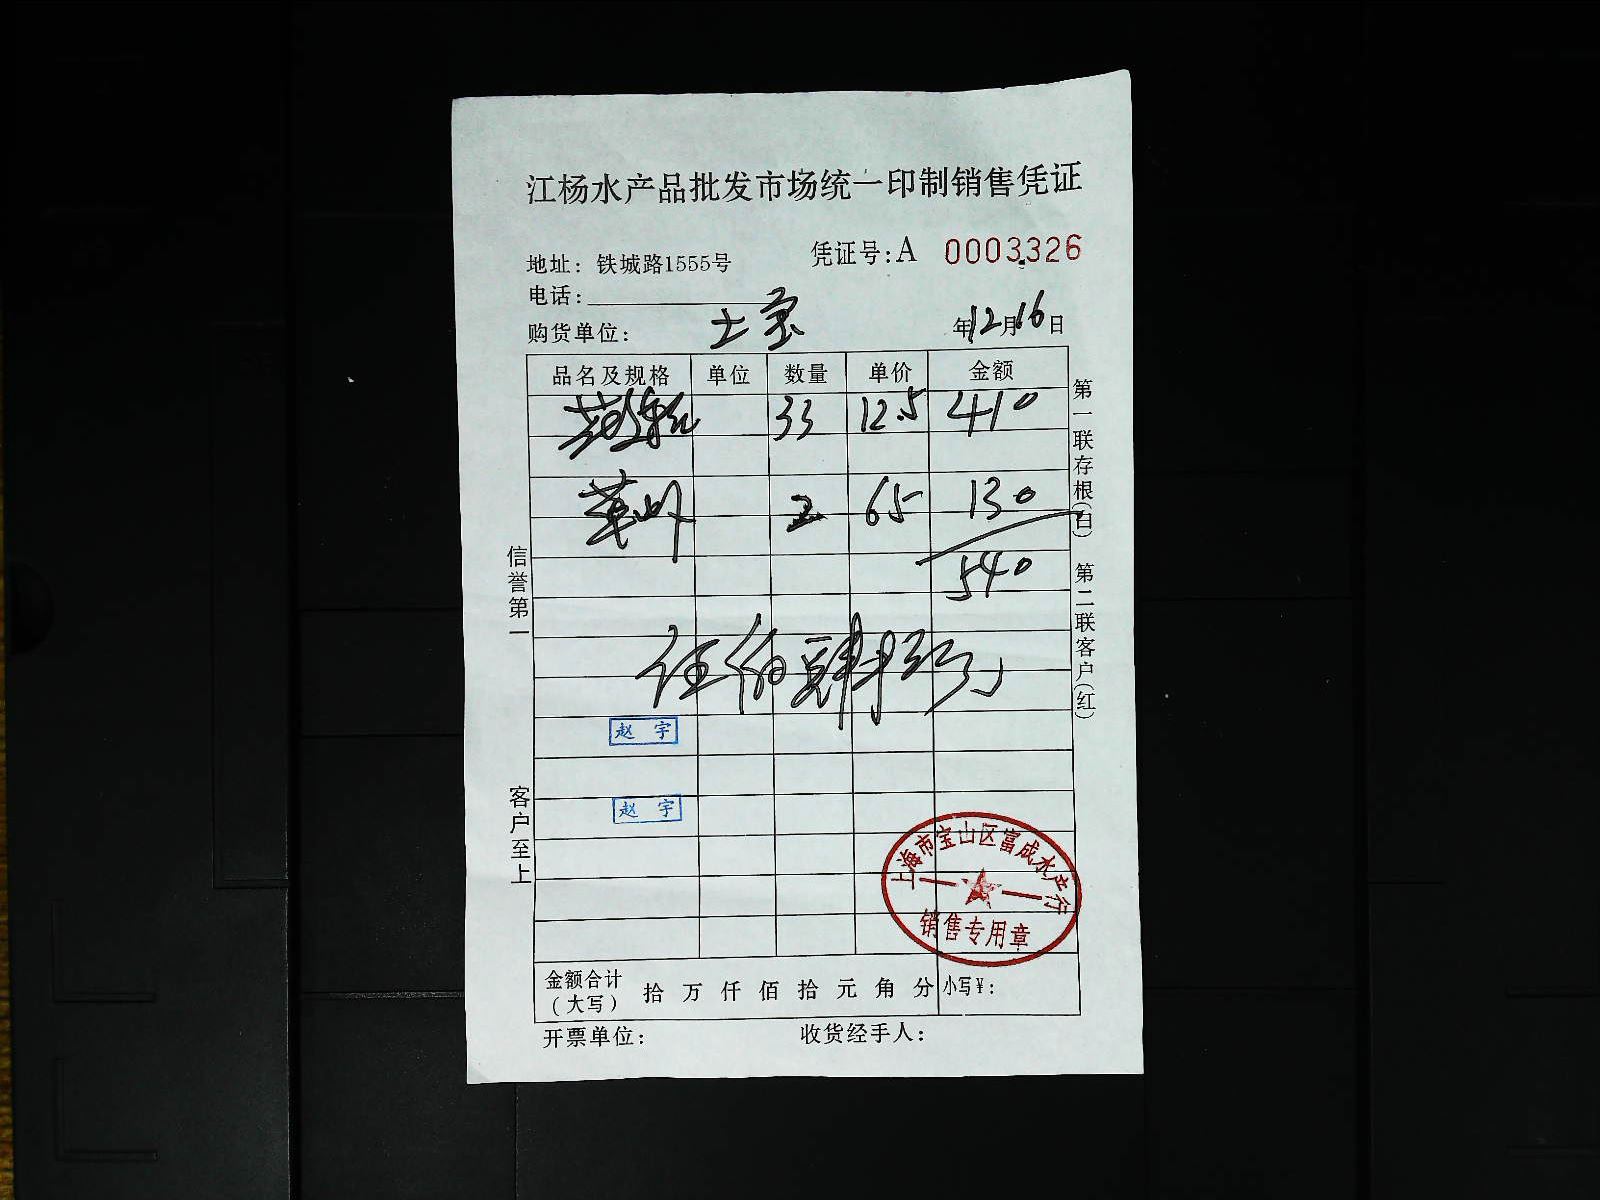 江杨水产品批发市场统一印制销售凭证
地址: 铁城路1555号
凭证号:A 0003326
电话:
购货单位: 士宝
年12月16日
品名及规格 单位 数量 单价 金额
33 12.5 410
2 65 130
540
伍佰肆拾元
赵宇
赵宇
上海市宝山区富成水产行
销售专用章
金额合计(大写) 拾 万 仟 佰 拾 元 角 分 小写¥:
开票单位: 收货经手人:
信誉第一
客户至上
第一联存根(白) 第二联客户(红)